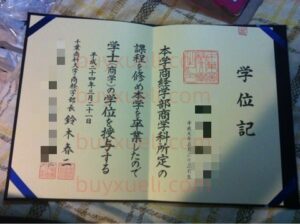 学位記
本学商経学部商学科所定の
課程を修め本学を卒業したので
学士(商学)の学位を授与する
平成二十四年三月二十一日
千葉商科大学商経学部長 鈴木春二
buyxueli.com
buyxueli.com
buyxueli.com